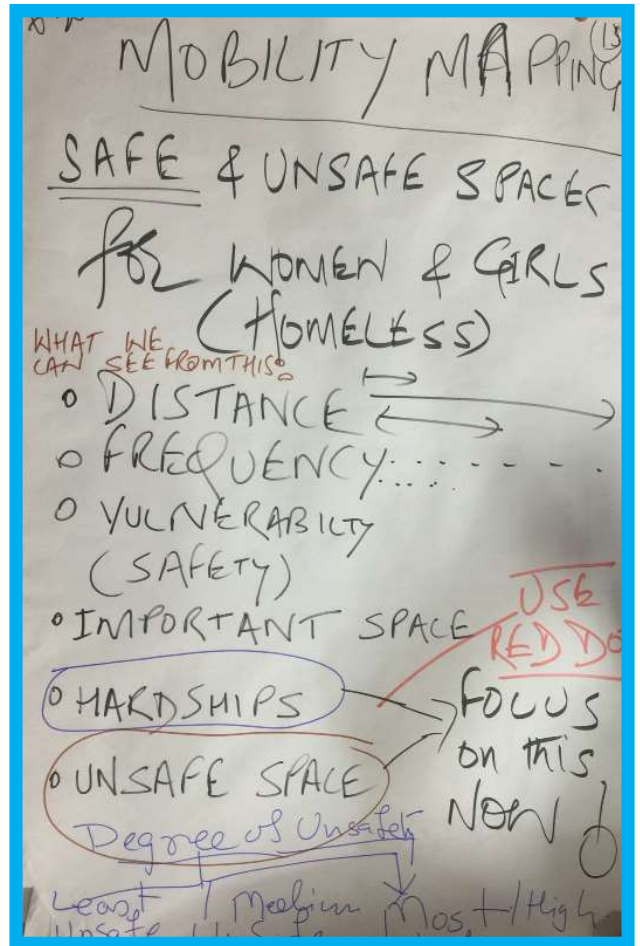 (13
MOBILITY MAPPING
SAFE & UNSAFE SPACES
for WOMEN & GIRLS
(HOMELESS)
WHAT WE
CAN SEE FROM THIS:
o DISTANCE
o FREQUENCY
o VULNERABILTY
(SAFETY)
o IMPORTANT SPACE
USE
RED DO
o HARDSHIPS
o UNSAFE SPACE
FOCUS
on this
NOW!
Degree of Unsafety
Least / Medium Most/High
Unsafe